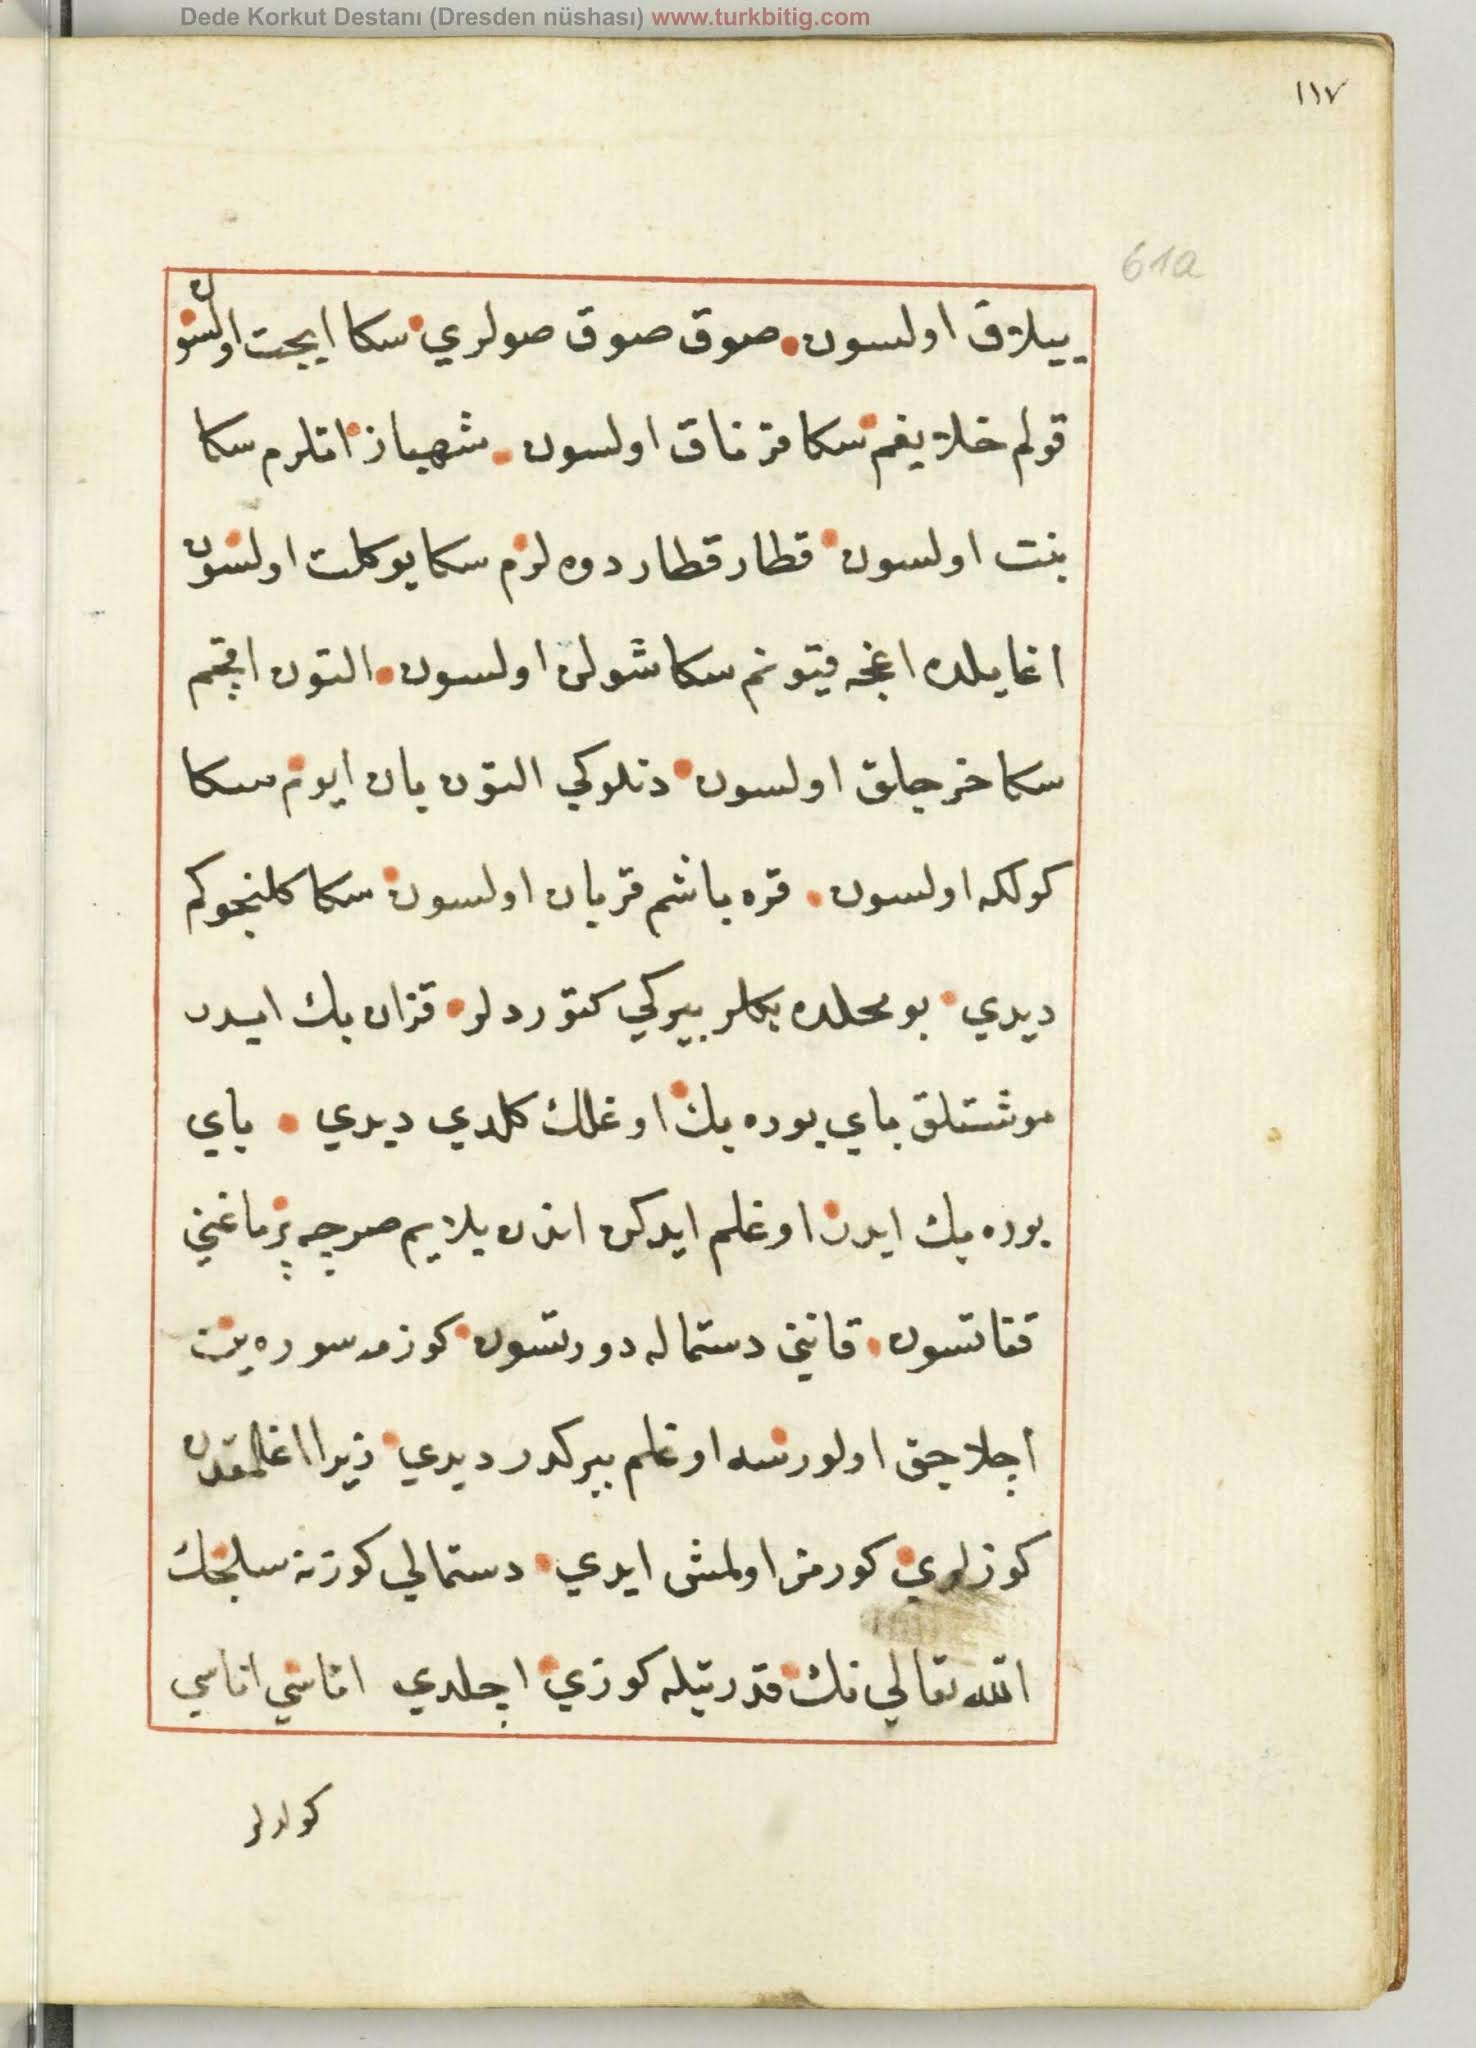 Dede Korkut Destanı (Dresden nüshası) www.turkbitig.com
١١٧
61a
ييلاق اولسون صوق صوق صولري سكا ايچت اولسون
قولم خلايغم سكا قرناق اولسون شهباز اتلرم سكا
بنت اولسون قطار قطار دوه لرم سكا يوكلت اولسون
اغايلده اغجه قيتونم سكا شولن اولسون التون اقچم
سكا خرجلق اولسون دنلوكي التون بان ايوم سكا
كولكه اولسون قره باشم قربان اولسون سكا كلنجوكم
ديدي بو محلده بكلر بيركي كتورد لر قزان بك ايدر
موشتلق باي بوره بك اوغلك كلدي ديدي باي
بوره بك ايدر اوغلم ايدكن اندن بلايم صرچه پرماغني
قناتسون قانني دستماله دورتسون كوزمه سوره ين
اچلاجق اولورسه اوغلم بيركدر ديدي زيرا اغلمقدن
كوزلري كورمز اولمش ايدي دستمالي كوزنه سلجك
الله تعالي نك قدرتيله كوزي اچلدي اتاسي اناسي